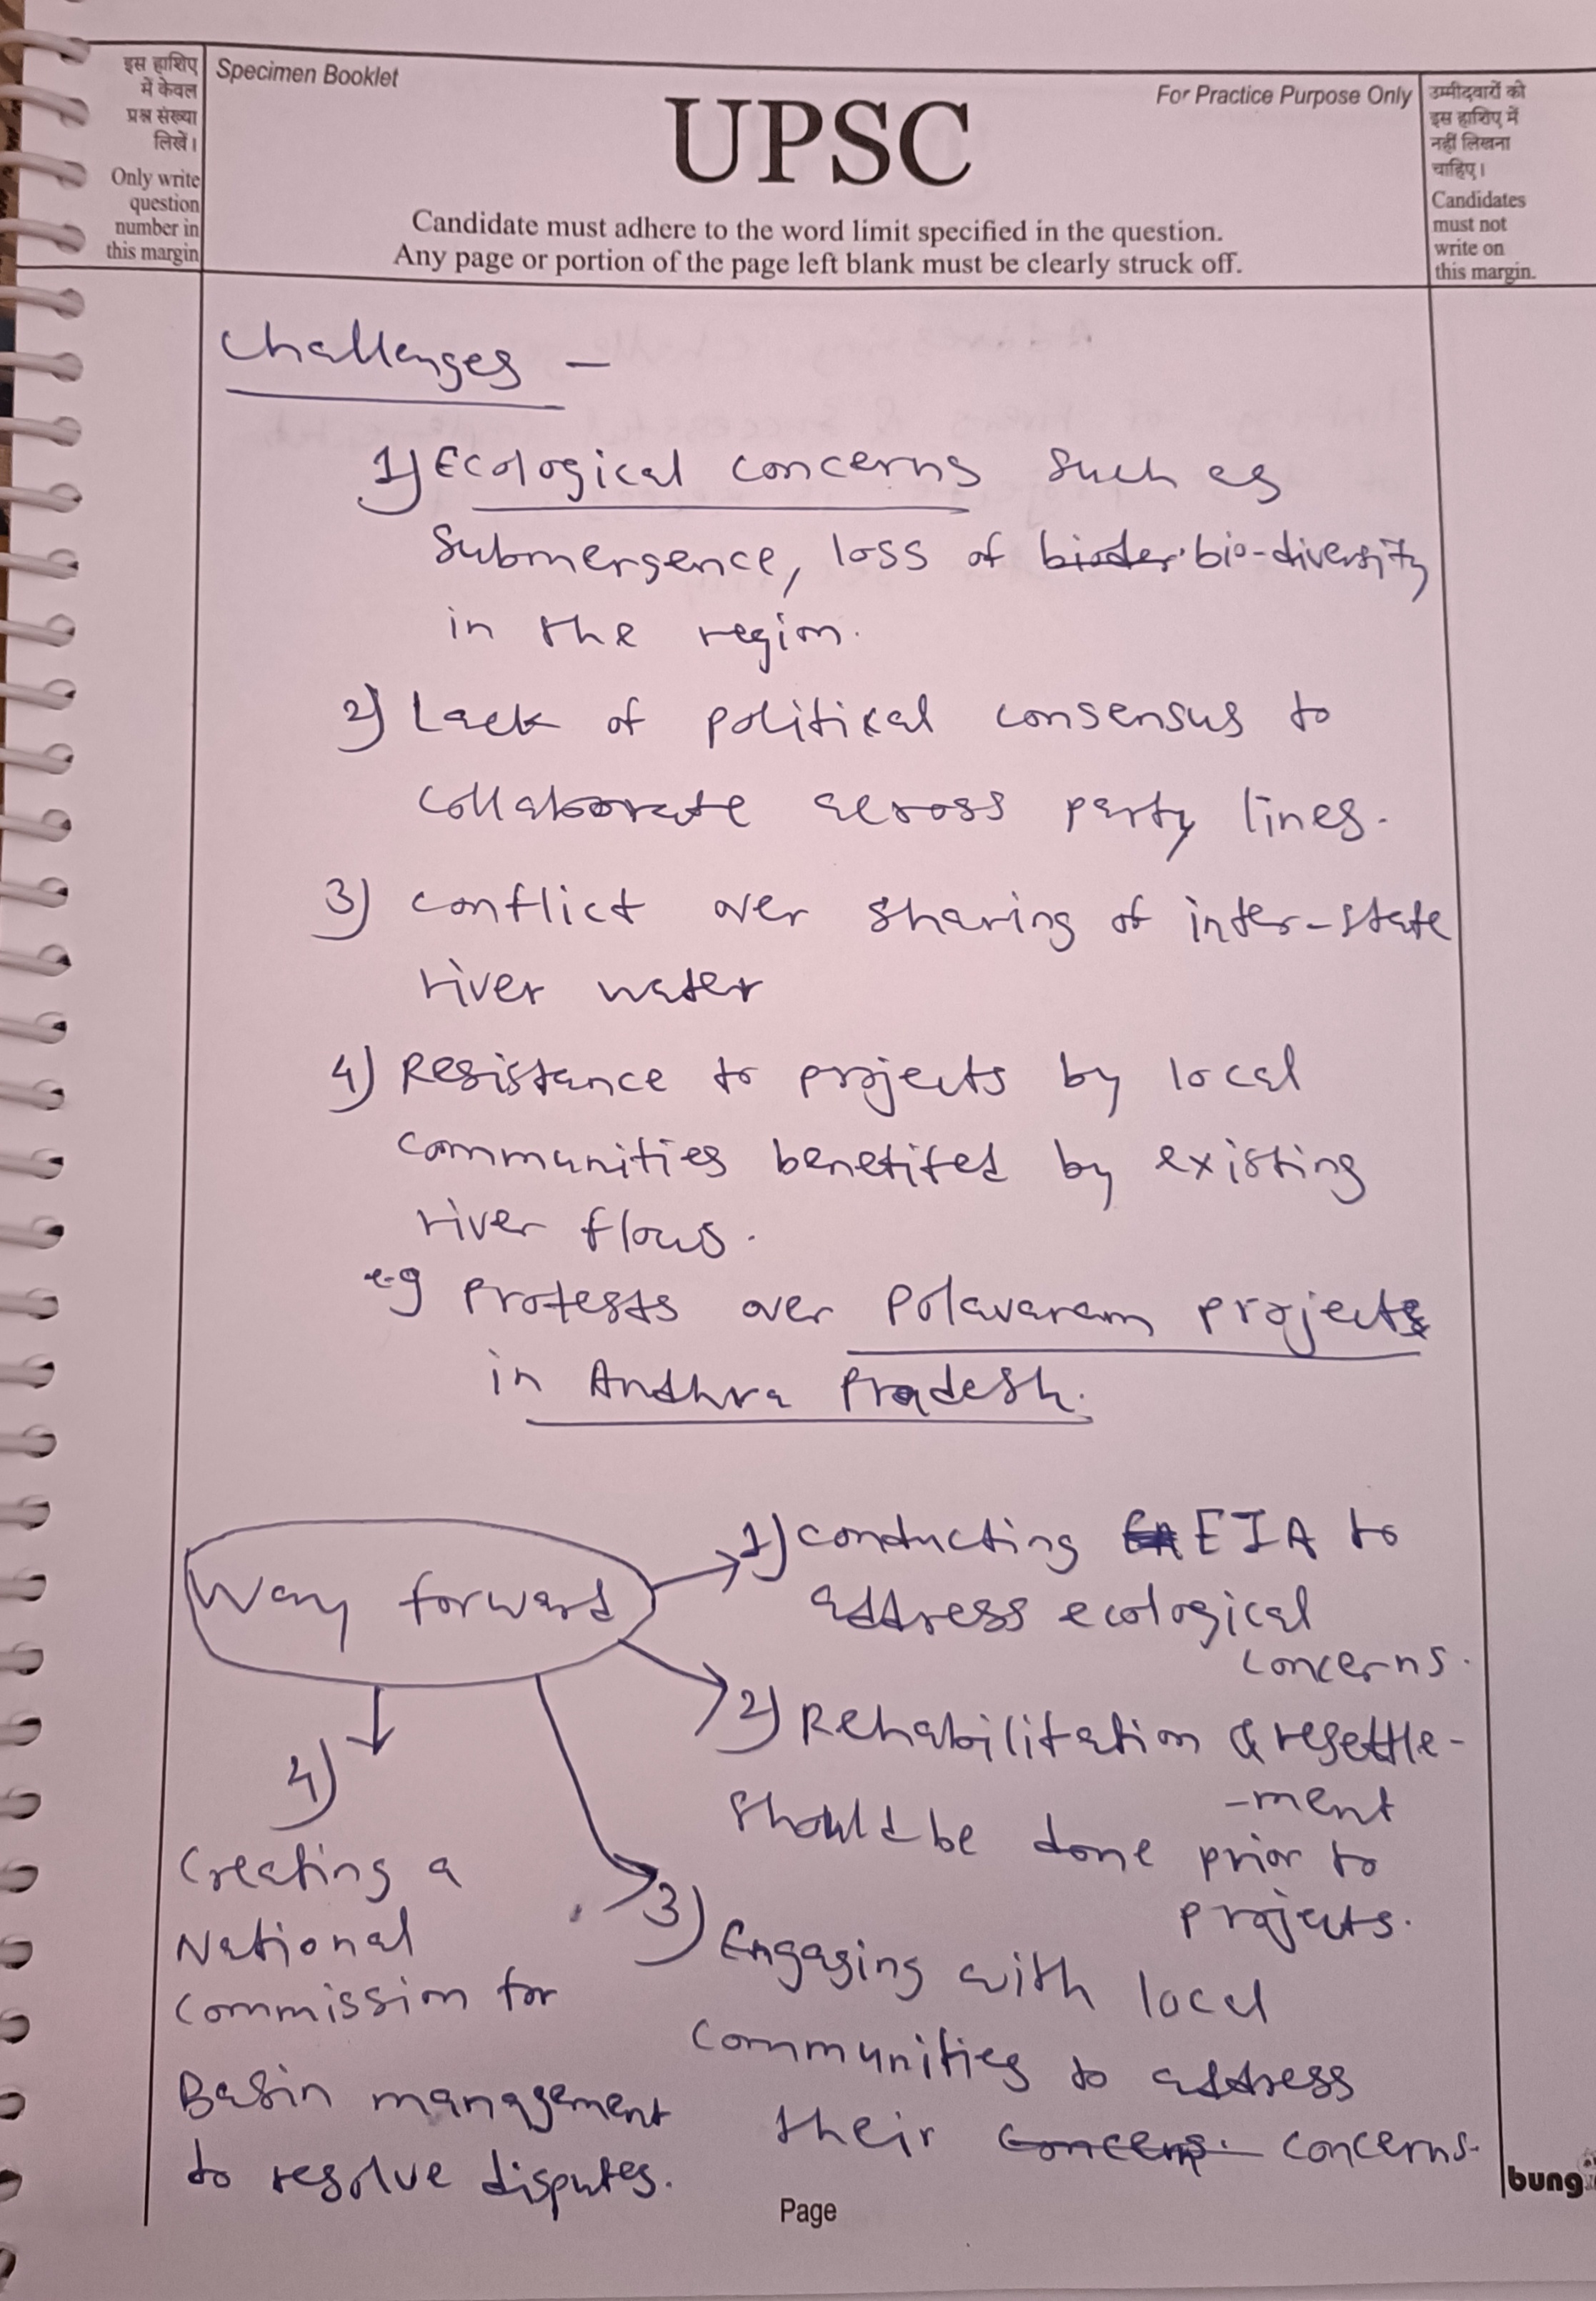 इस हाशिए
में केवल
प्रश्न संख्या
लिखें।
Only write
question
number in
this margin
Specimen Booklet
For Practice Purpose Only
UPSC
Candidate must adhere to the word limit specified in the question.
Any page or portion of the page left blank must be clearly struck off.
उम्मीदवारों को
इस हाशिए में
नहीं लिखना
चाहिए।
Candidates
must not
write on
this margin.
Challenges -
1) Ecological concerns such as
submergence, loss of bio-diversity
in the region.
2) Lack of political consensus to
collaborate across party lines.
3) conflict over sharing of inter-state
river water
4) Resistance to projects by local
communities benefited by existing
river flows.
e-g Protests over Polavaram project
in Andhra Pradesh.
Way forward
1) conducting EIA to
address ecological
concerns.
2) Rehabilitation & resettle-
-ment
should be done prior to
projects.
3) Engaging with local
communities to address
their concerns.
4)
Creating a
National
Commission for
Basin management
to resolve disputes.
Page
bung